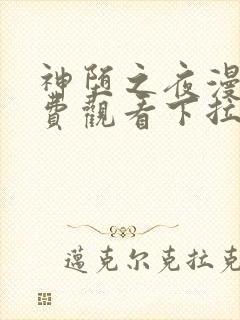 神堕之夜漫
費觀看下拉
邁克尔克拉克